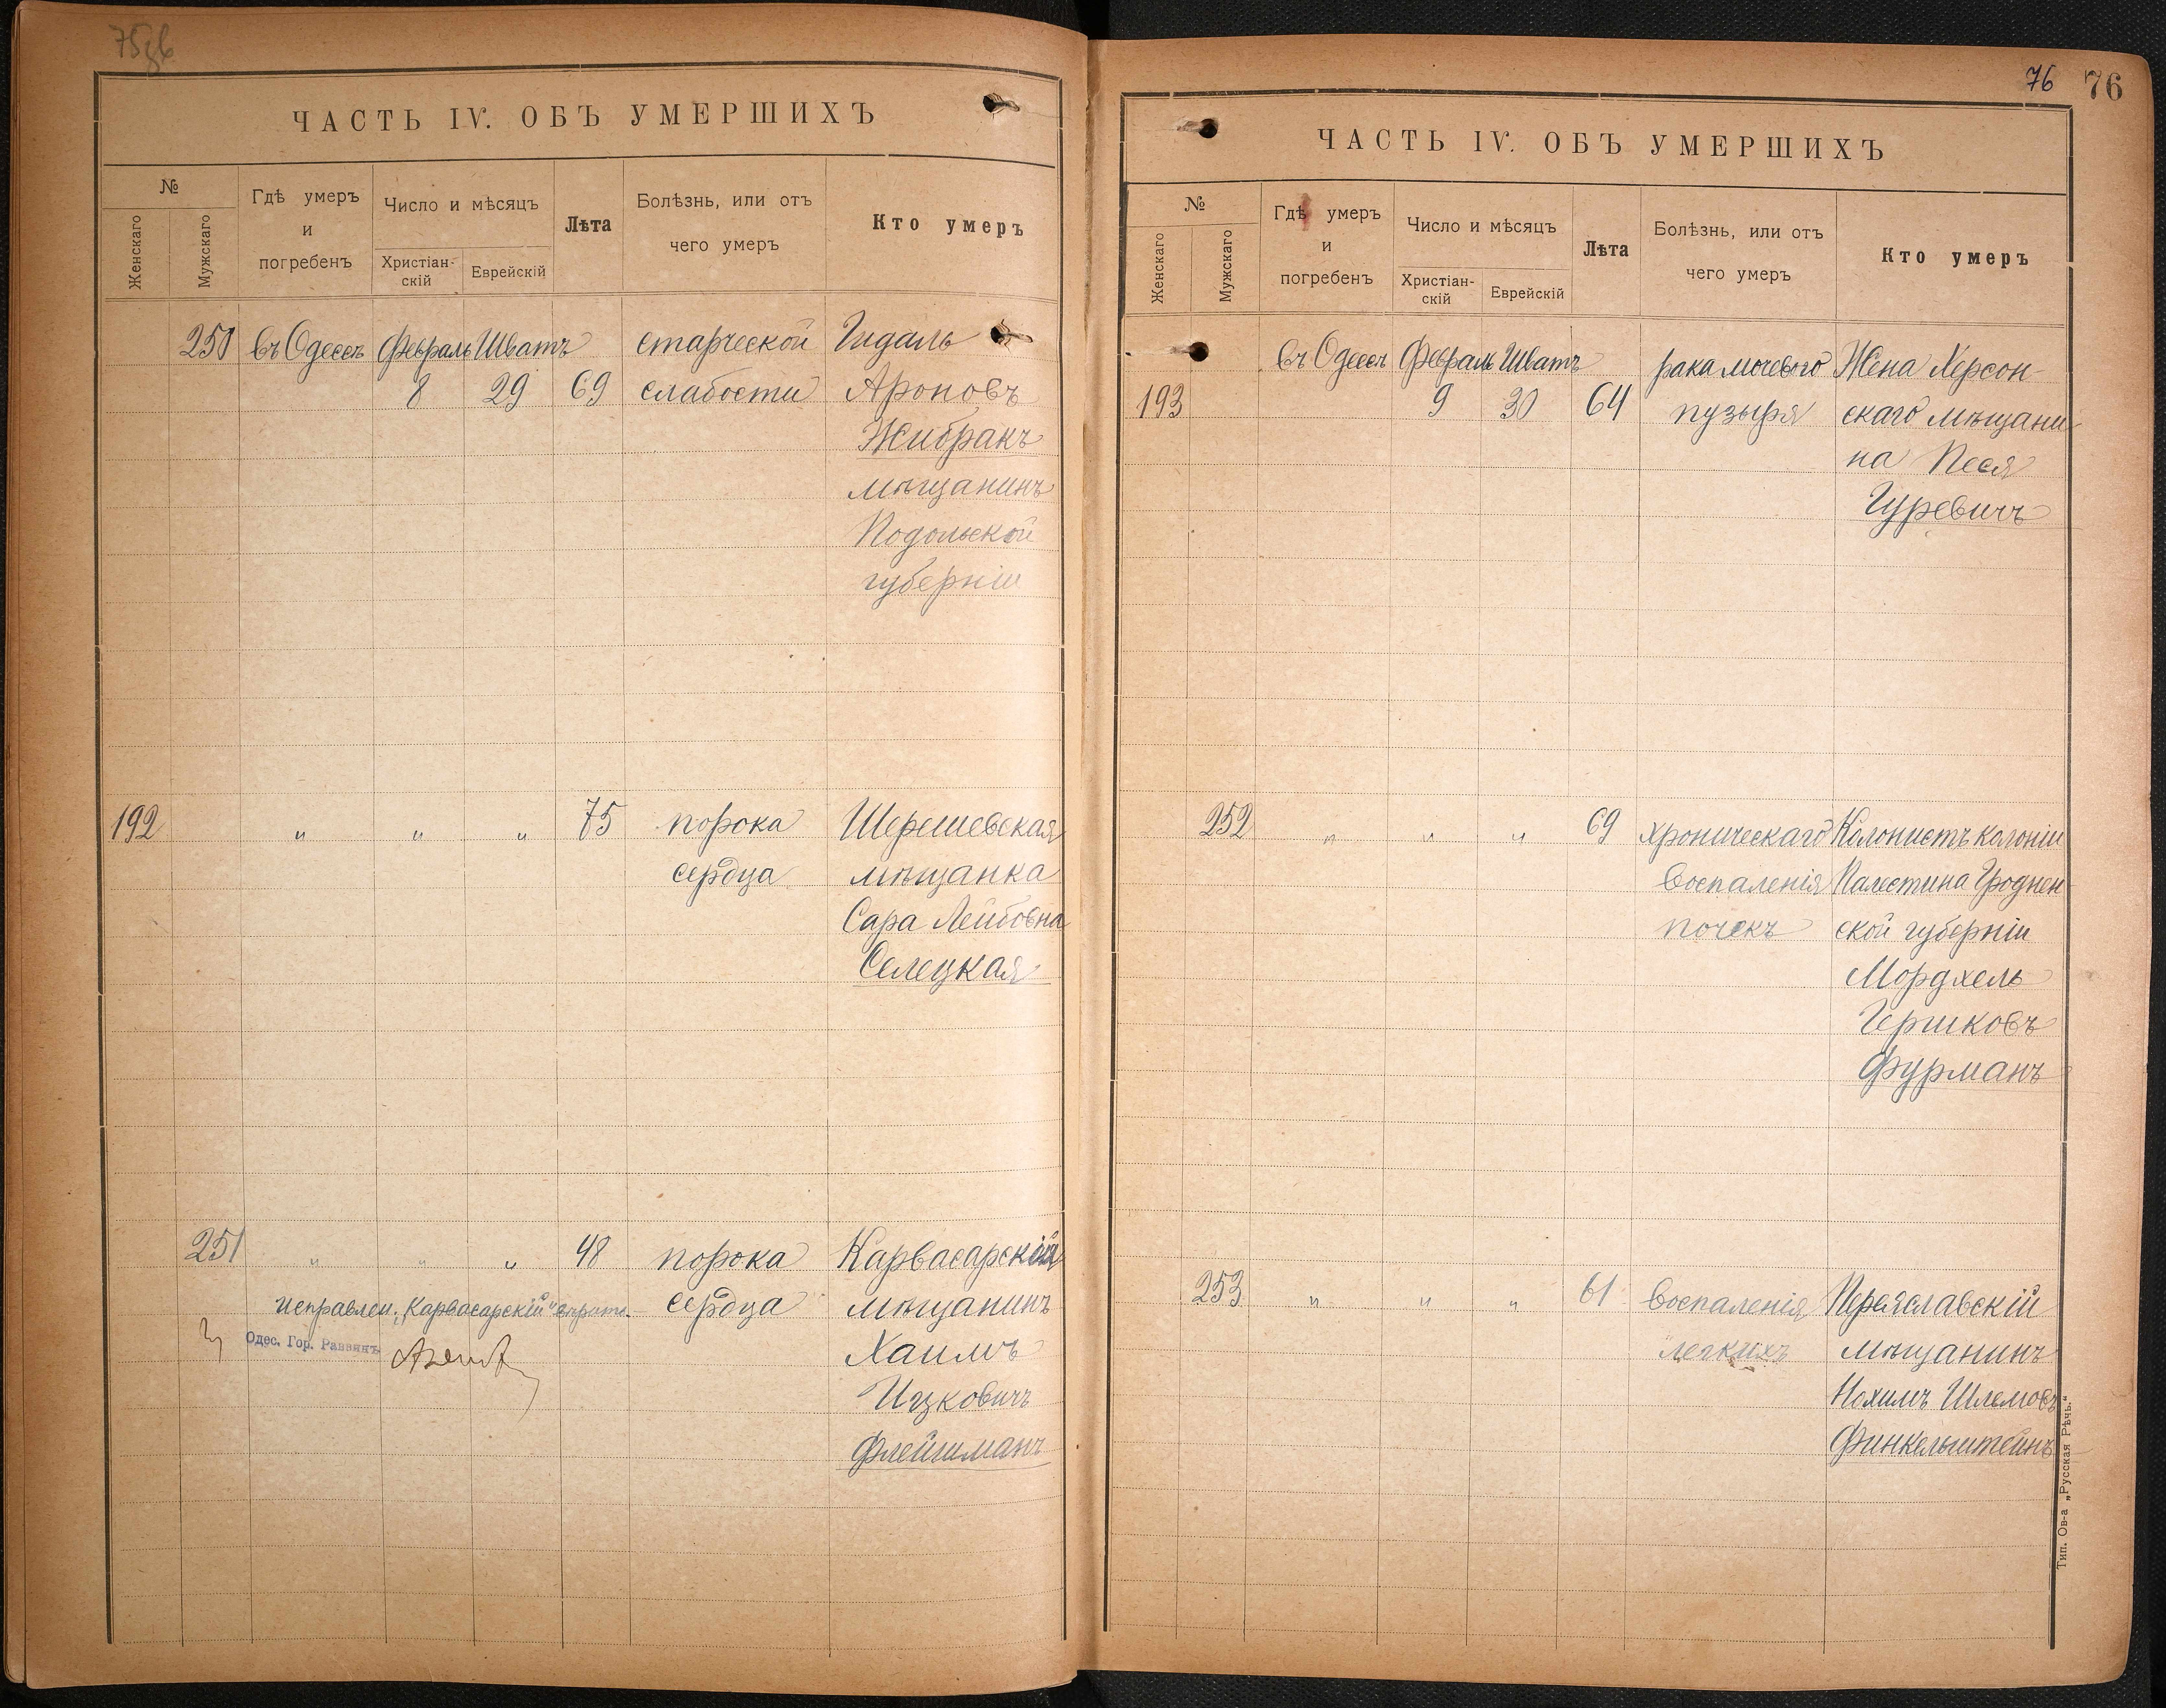 75об
ЧАСТЬ IV. ОБЪ УМЕРШИХЪ
№
Женскаго
Мужскаго
Гдѣ умеръ
и
погребенъ
Число и мѣсяцъ
Христіан-
скій
Еврейскій
Лѣта
Болѣзнь, или отъ
чего умеръ
Кто умеръ
250 въ Одессѣ Февраль Шватъ старческой Гидаль
8 29 69 слабости Ароновъ
Жибракъ
мѣщанинъ
Подольской
губерніи
192 " " " 75 порока Шерешевская
сердца мѣщанка
Сара Лейбовна
Селецкая
251 " " " 48 порока Карвасарскій
исправлен. „Карвасарскій" сердца мѣщанинъ
Одес. Гор. Раввинъ
Хаимъ
Ицковичъ
Флейшманъ
76 76
ЧАСТЬ IV. ОБЪ УМЕРШИХЪ
№
Женскаго
Мужскаго
Гдѣ умеръ
и
погребенъ
Число и мѣсяцъ
Христіан-
скій
Еврейскій
Лѣта
Болѣзнь, или отъ
чего умеръ
Кто умеръ
въ Одессѣ Февраль Шватъ рака мочевого Жена Херсон-
193 9 30 64 пузыря скаго мѣщани
на Песя
Гуревичъ
252 " " " 69 хроническаго Колонистъ колоніи
воспаленія Палестина Гроднен
почекъ ской губерніи
Мордхель
Гершковъ
Фурманъ
253 " " " 61 воспаленія Переяславскій
легкихъ мѣщанинъ
Нохимъ Шлемовъ
Финкельштейнъ
Тип. Ов-а „Русская Рѣчь."